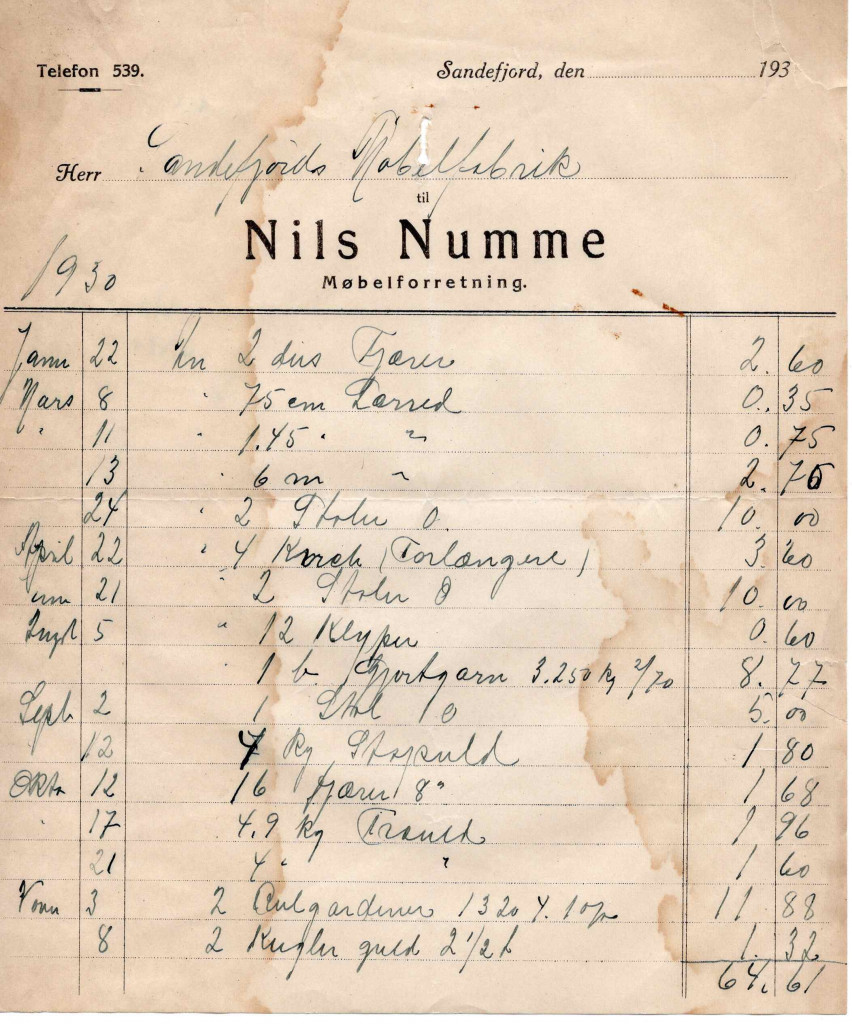 Telefon 539. Sandefjord, den 193
Herr Sandefjords Møbelfabrik
til
Nils Numme
Møbelforretning.
1930
Janu 22 2 dus Fjærer 2. 60
Mars 8 " 75 cm Lærred 0. 35
" 11 " 1.45 " " 0. 75
13 " 6 m " 2. 70
24 " 2 Stoler O 10. 00
April 22 " 4 (Forlængere) 3. 60
21 " 2 Stoler O 10. 00
5 " 12 Klyper 0. 60
" 1 b. Gjortgarn 3.250 kg 2/70 8. 77
Sept 2 1 Stol O 5. 00
12 4 kg Stopuld 1 80
Okto 12 16 fjærer 8" 1 68
" 17 4.9 kg Træuld 1 96
21 4 " " 1 60
Novm 3 2 Rulgardiner 11 88
8 2 Kugler guld 2 1/2 t 1. 32
64. 61